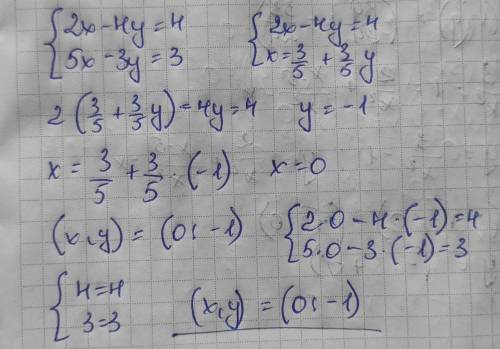 {2x-4y=4 {2x-4y=4
{5x-3y=3 {x=3/5+3/5y
2(3/5+3/5y)=4y=4 y=-1
x=3/5+3/5·(-1) x=0
(x,y)=(0;-1) {2·0-4·(-1)=4
{5·0-3·(-1)=3
{4=4
{3=3 (x,y)=(0;-1)